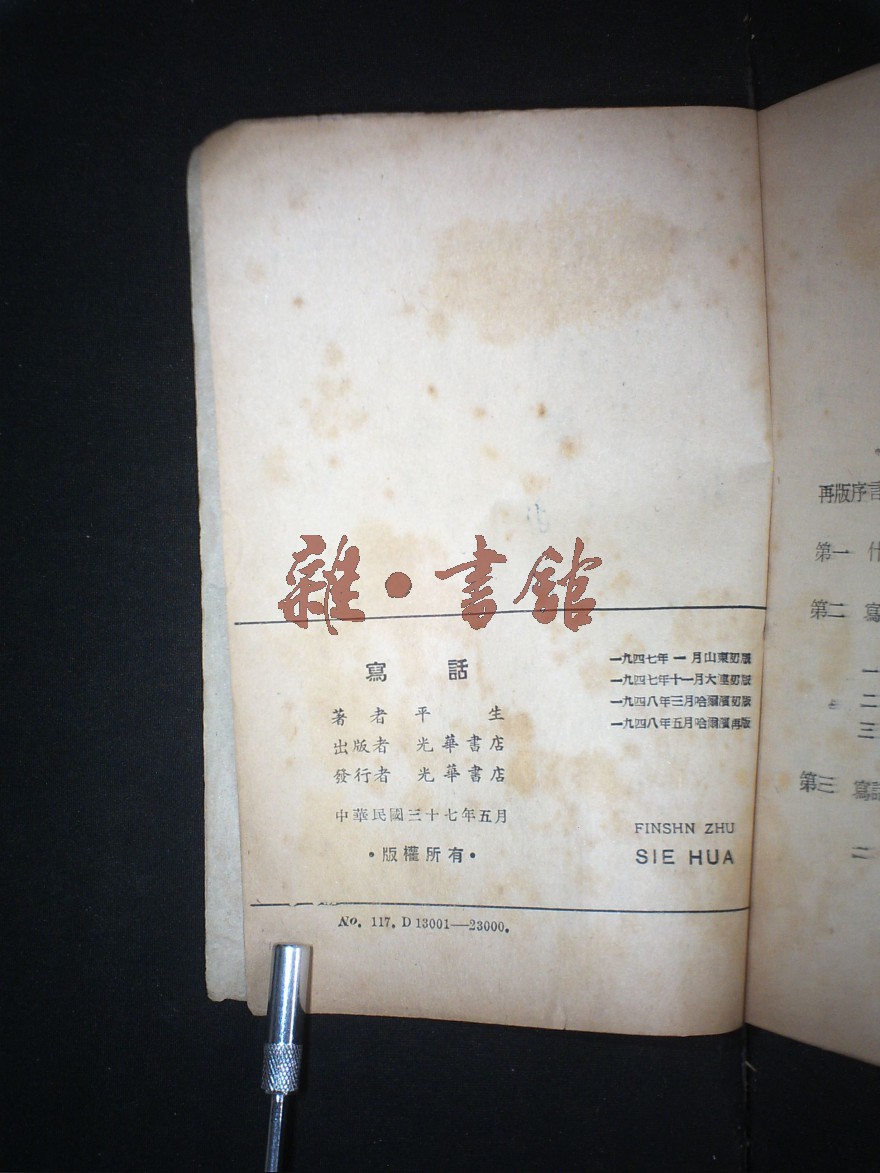 雜·書館
寫 話
著者 平生
出版者 光華書店
發行者 光華書店
中華民國三十七年五月
·版權所有·
一九四七年一月山東初版
一九四七年十一月大連初版
一九四八年三月哈爾濱初版
一九四八年五月哈爾濱再版
FINSHN ZHU
SIE HUA
No. 117. D 13001—23000.
再版序言
第一 什
第二 寫
一
二
三
第三 寫話
二